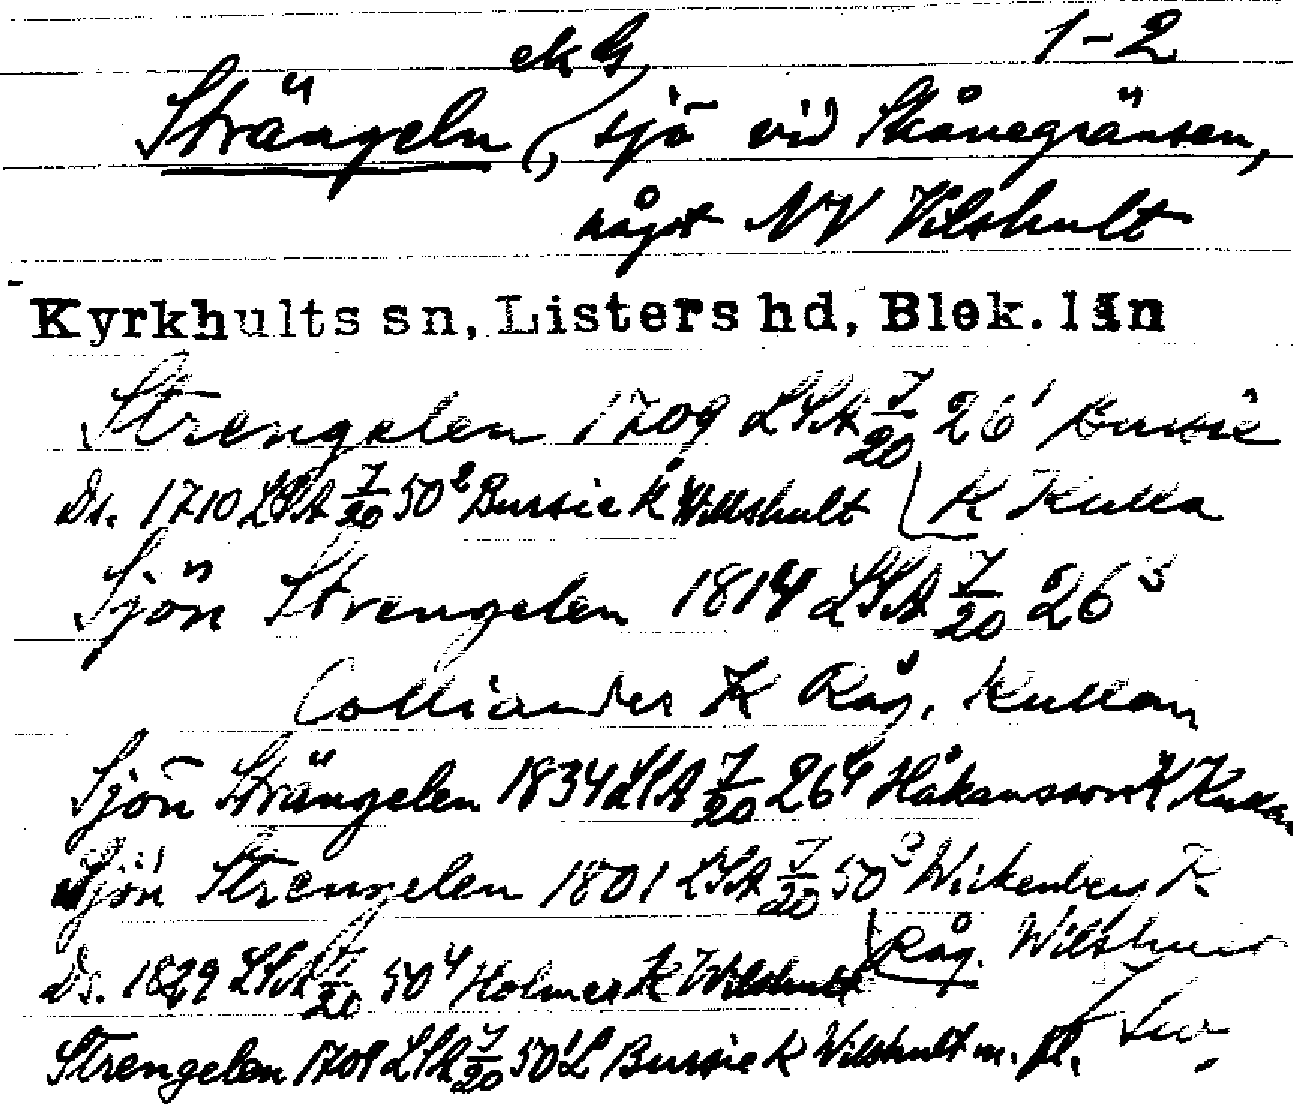 ek G 1-2
Strängeln (, sjö vid Skånegränsen,
något NV Vilshult
Kyrkhults sn, Listers hd, Blek. län
Strengelen 1709 LSA 7/20 26¹ Bursie
Ds. 1710 LSA 7/20 50² Bursie K Willshult K Kulla
Sjön Strengelen 1814 LSA 7/20 26³
Colliander K Råg. Kullan
Sjön Strängelen 1834 LSA 7/20 26⁴ Håkansson K Kullan
Sjön Strengelen 1801 LSA 7/20 50³ Wickenberg K
Råg. Wilshult
Ds. 1829 LSA 7/20 50⁴ Holmer K Wilshult
Strengelen 1709 LSA 7/20 50¹ L Bursie K Wilshult m. fl.